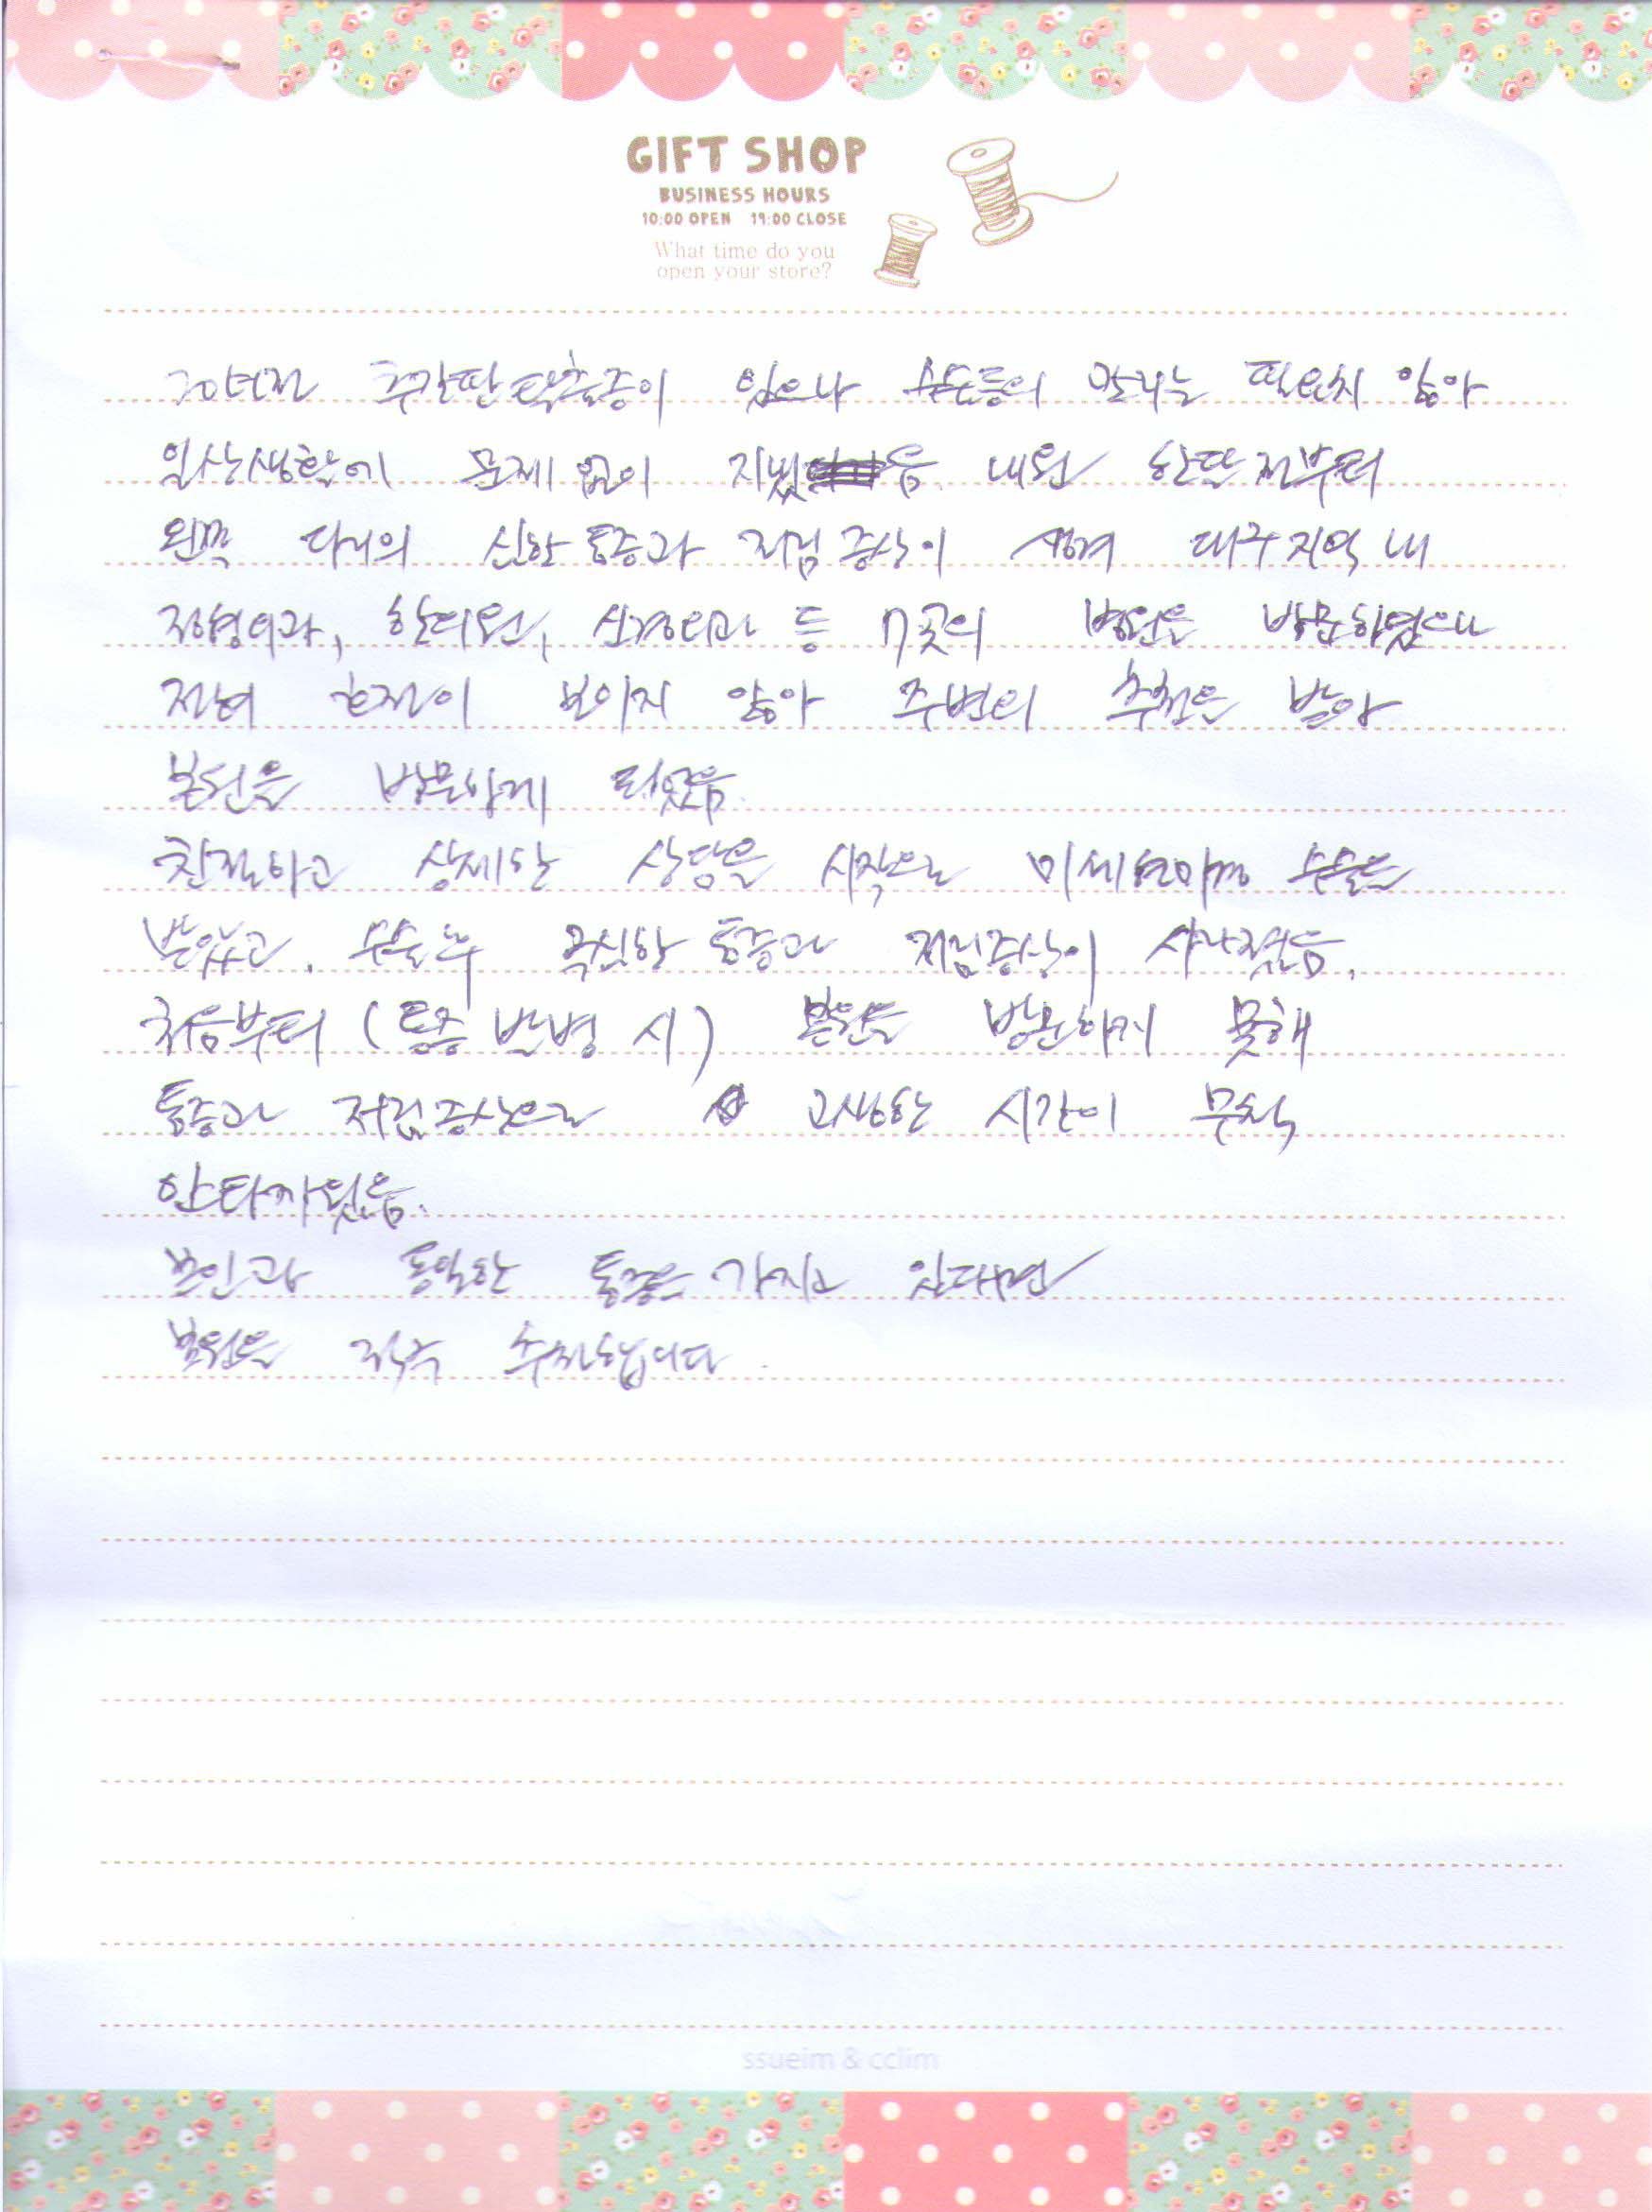 GIFT SHOP
BUSINESS HOURS
10:00 OPEN 19:00 CLOSE
What time do you
open your store?
추간판 탈출증이 있으나 수술등의 필요치 않아
일상생활에 문제 없이 지냈음. 내원 한달 전부터
왼쪽 다리의 심한 통증과 저림 증상이 생겨 대구지역 내
정형외과, 한의원, 신경외과 등 7곳의 병원을 방문하였으나
전혀 호전이 보이지 않아 주변의 추천을 받아
본원을 방문하게 되었음.
친절하고 상세한 상담을 시작으로 미세현미경 수술을
받았고, 수술후 극심한 통증과 저림증상이 사라졌음.
처음부터 (통증 발병 시) 본원을 방문하지 못해
통증과 저림증상으로 고생한 시간이 무척
안타까웠음.
본인과 동일한 통증을 가지고 있다면
본원을 적극 추천합니다.
ssueim & cclim